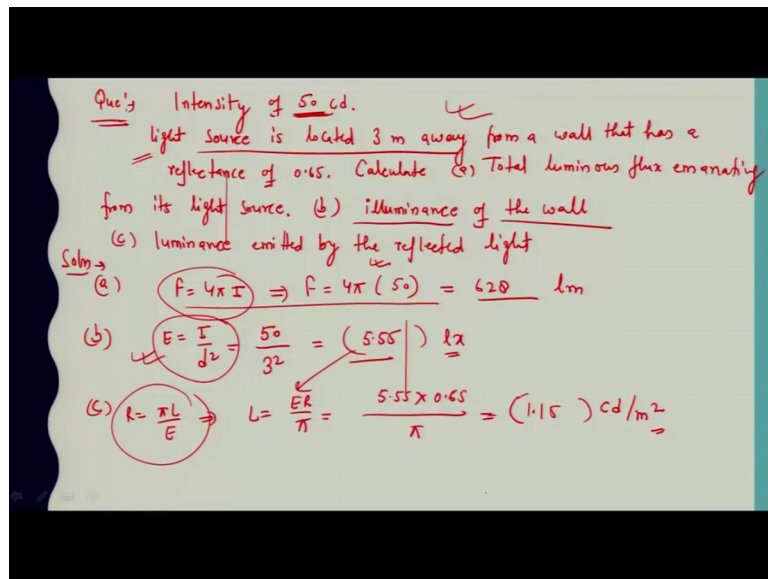 Que:→ Intensity of 50 cd.
light source is located 3 m away from a wall that has a
reflectance of 0.65. Calculate (a) Total luminous flux emanating
from its light source. (b) illuminance of the wall
(c) luminance emitted by the reflected light
Soln→
(a) F = 4π I ⇒ F = 4π ( 50 ) = 628 lm
(b) E = I/d² = 50/3² = ( 5.55 ) lx
(c) R = πL/E ⇒ L = ER/π = 5.55 × 0.65/π = (1.15 ) cd/m²